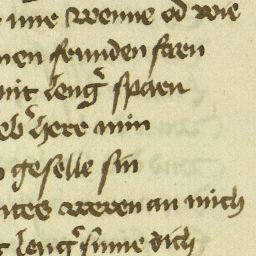 mie wenne od wie
nen frunden farn
mit leng͛ sparn
eb͛ here min
geselle sin
ntes weren an mich
leng͛ sume dich